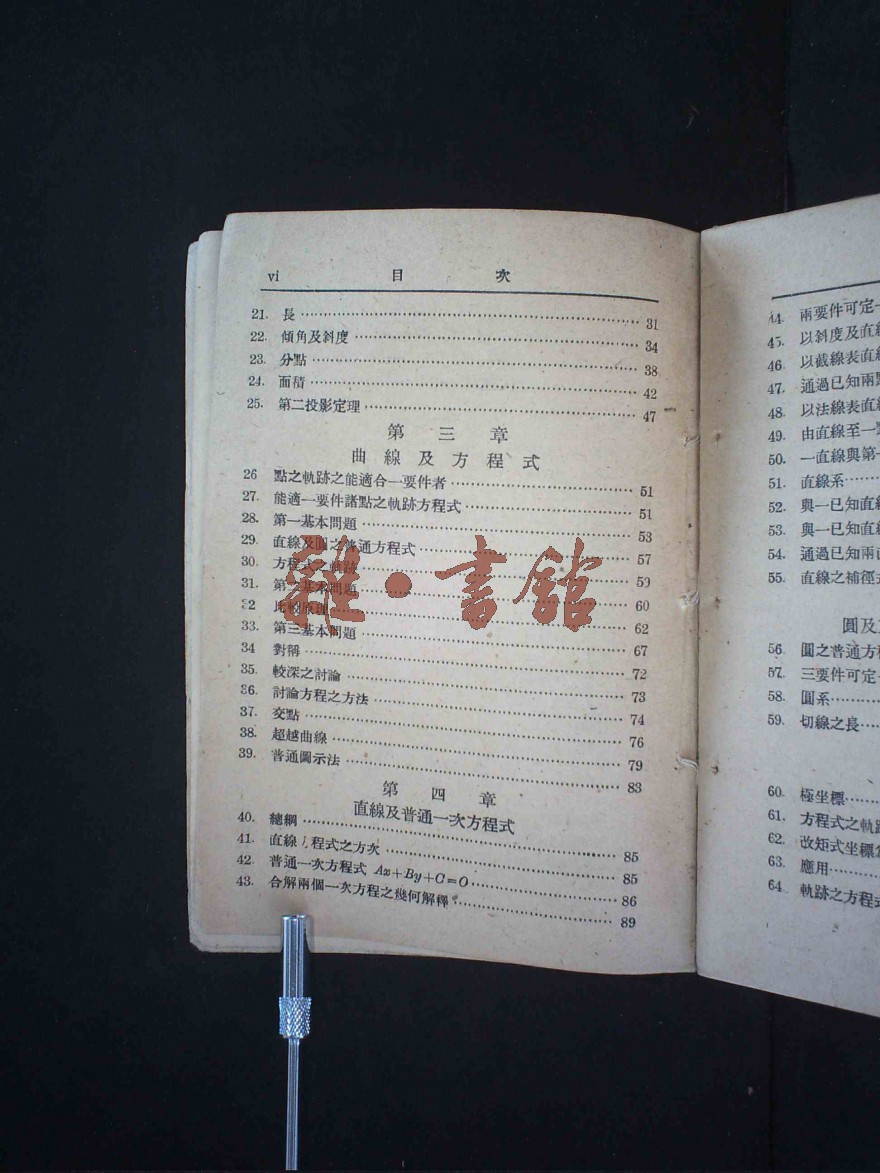 vi 目 次
21. 長 31
22. 傾角及斜度 34
23. 分點 38
24. 面積 42
25. 第二投影定理 47
第 三 章
曲 線 及 方 程 式
26 點之軌跡之能適合一要件者 51
27. 能適一要件諸點之軌跡方程式 51
28. 第一基本問題 53
29. 直線及圓之普通方程式 57
30. 方程式之軌跡 59
31. 第二基本問題 60
32 比較原理 62
33. 第三基本問題 67
34 對稱 72
35. 較深之討論 73
36. 討論方程之方法 74
37. 交點 76
38. 超越曲線 79
39. 普通圖示法 83
第 四 章
直線及普通一次方程式
40. 總綱 85
41. 直線 程式之方次 85
42. 普通一次方程式 Ax+By+C=O 86
43. 合解兩個一次方程之幾何解釋 89
雜·書館
44. 兩要件可定
45. 以斜度及直
46. 以截線表直
47. 通過已知兩
48. 以法線表直
49. 由直線至一
50. 一直線與第
51. 直線系
52. 與一已知直
53. 與一已知直
54. 通過已知兩
55. 直線之補徑
圓及
56. 圓之普通方
57. 三要件可定
58. 圓系
59. 切線之長
60. 極坐標
61. 方程式之軌
62. 改矩式坐標
63. 應用
64. 軌跡之方程